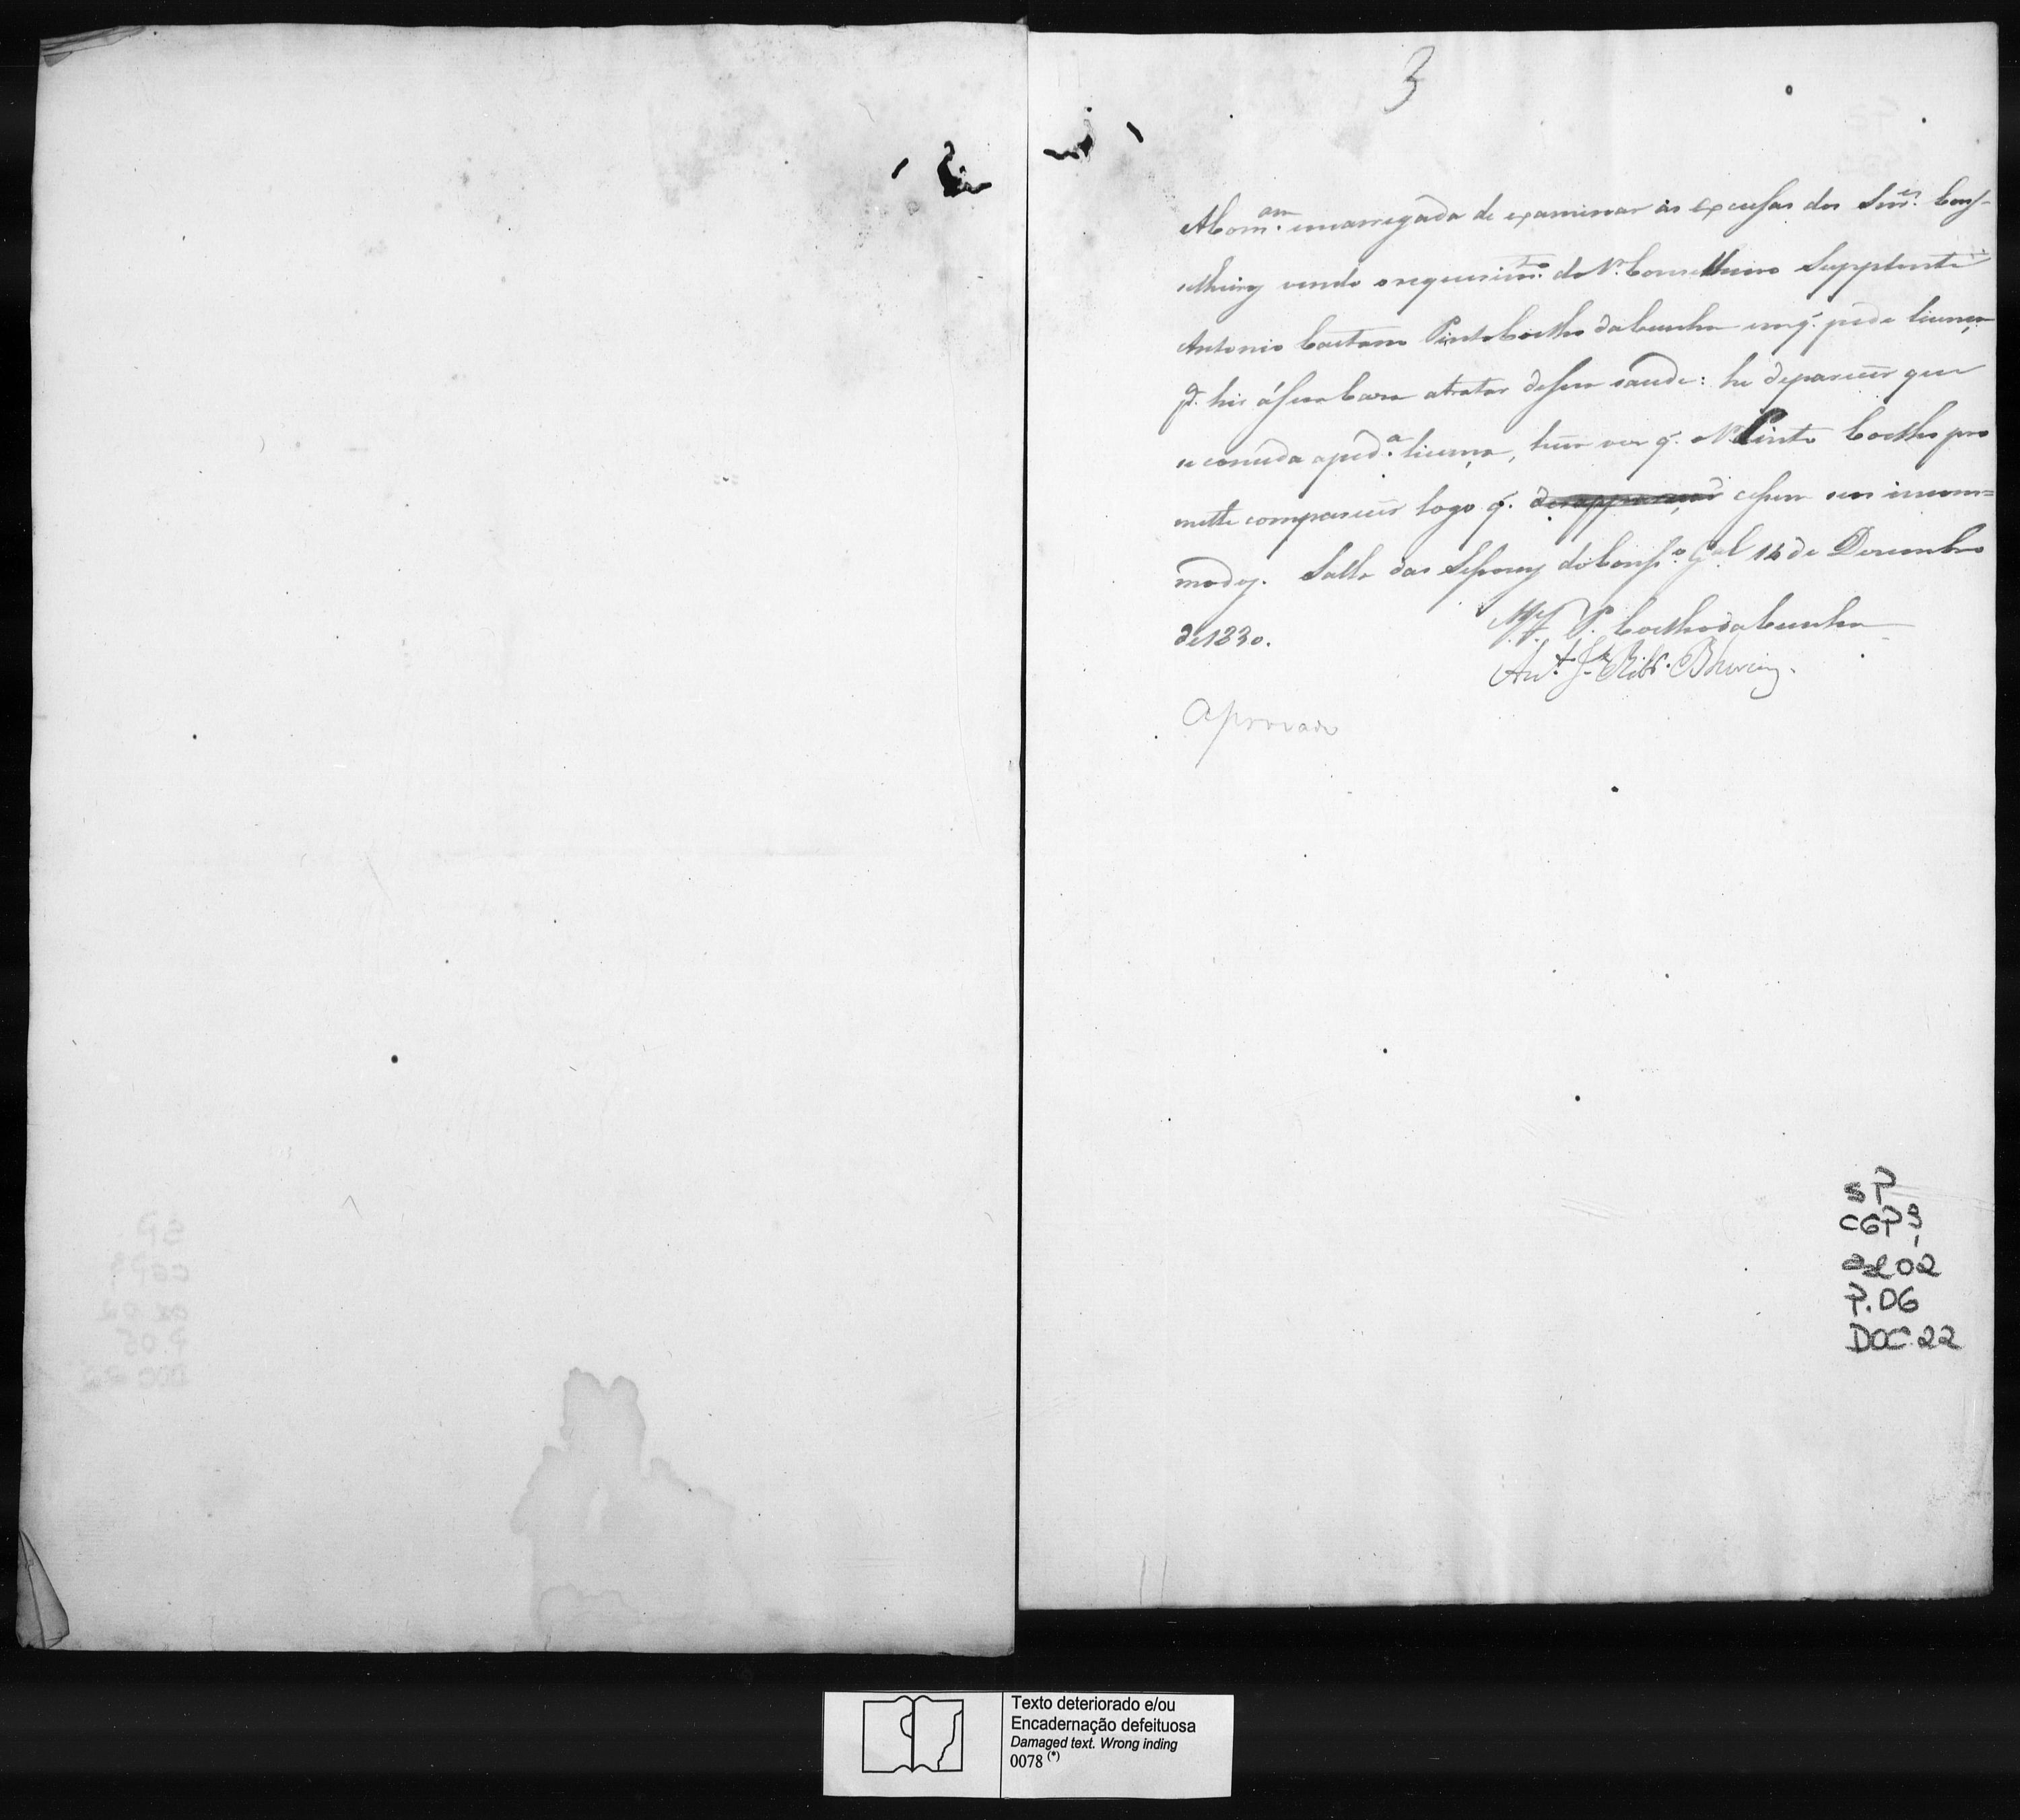 3
A Com.am encarregada de examinar as excusas dos Snr.es Cons-
elheiros vendo o requerim.to do Sr. Conselheiro Supplente
Antonio Caetano Pinto Coelho da Cunha em q. pede licença
p.a hir á sua Caza a tratar de sua saude: he de parecer que
se conceda a ped.a licença, huma vez q. o Sr. Pinto Coelho pro
mette comparecer logo q. desappareção cessem seus incom=
modos. Salla das Sessoens do Cons.o G.al 14 de Dezembro
de 1830.
P. Coelho da Cunha
Ant. J.e Rib.o Bhering.
Aprovado
SP
CGP 3
02
P. 06
DOC. 22
SP
CGP 3
cx 02
P. 05
DOC 22
Texto deteriorado e/ou
Encadernação defeituosa
Damaged text. Wrong inding
0078 (*)